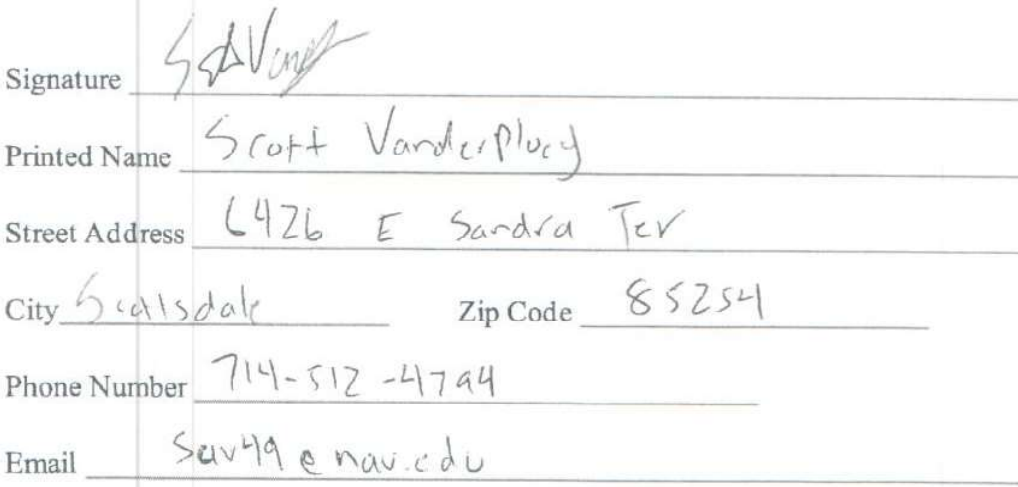 Signature
Printed Name Scott Vanderploeg
Street Address 6426 E Sandra Ter
City Scottsdale Zip Code 85254
Phone Number 714-512-4794
Email sav49@nau.edu